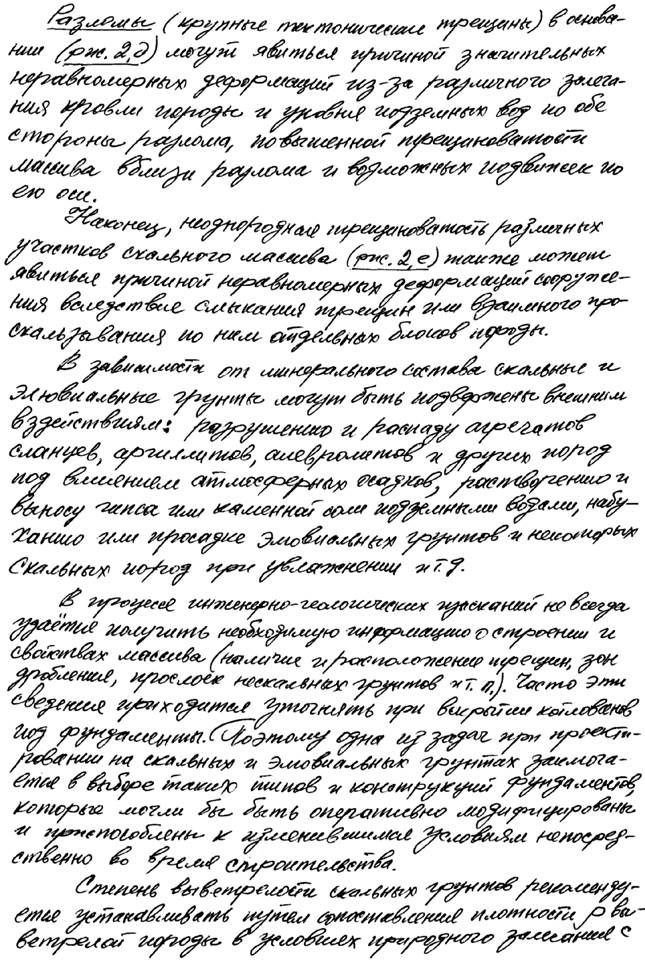 Разломы (крупные тектонические трещины) в основа-
нии (рис. 2,д) могут явиться причиной значительных
неравномерных деформаций из-за различного залега-
ния кровли породы и уровня подземных вод по обе
стороны разлома, повышенной трещиноватости
массива вблизи разлома и возможных подвижек по
его оси.
Наконец, неоднородная трещиноватость различных
участков скального массива (рис. 2,е) также может
явиться причиной неравномерных деформаций сооруже-
ния вследствие смыкания трещин или взаимного про-
скальзывания по ним отдельных блоков породы.
В зависимости от минерального состава скальные и
элювиальные грунты могут быть подвержены внешним
вздействиям: разрушению и распаду агрегатов
сланцев, аргиллитов, алевролитов и других пород
под влиянием атмосферных осадков, растворению и
выносу гипса или каменной соли подземными водами, набу-
ханию или просадке элювиальных грунтов и некоторых
скальных пород при увлажнении и т.д.
В процессе инженерно-геологических изысканий не всегда
удаётся получить необходимую информацию о строении и
свойствах массива (наличие и расположение трещин, зон
дробления, прослоек нескальных грунтов и т.п.). Часто эти
сведения приходится уточнять при вскрытии котлованов
под фундаменты. Поэтому одна из задач при проекти-
ровании на скальных и элювиальных грунтах заключа-
ется в выборе таких типов и конструкций фундаментов,
которые могли бы быть оперативно модифицированы
и приспособлены к изменившимся условиям непосред-
ственно во время строительства.
Степень выветрелости скальных грунтов рекоменду-
ется устанавливать путём сопоставления плотности ρ вы-
ветрелой породы в условиях природного залегания с